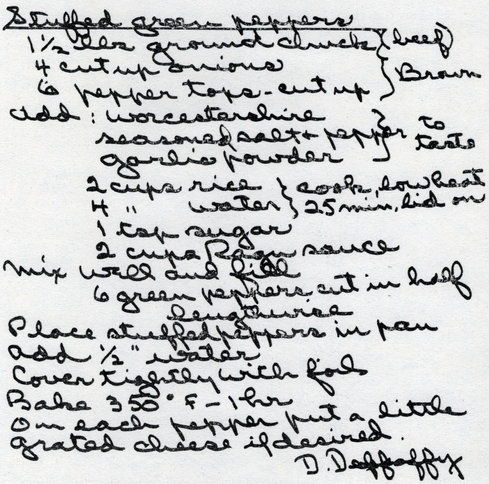 Stuffed green peppers
1 1/2 lbs ground chuck (beef)
4 cut up onions } Brown
6 pepper tops - cut up
add: worcestershire
seasoned salt + pepper } to taste
garlic powder
2 cups rice } cook, low heat
4 " water } 25 min, lid on
1 tsp sugar
2 cups Ragu sauce
mix well and fill
6 green peppers cut in half
lengthwise
Place stuffed peppers in pan
add 1/2" water
Cover tightly with foil
Bake 350° F - 1 hr
on each pepper put a little
grated cheese if desired.